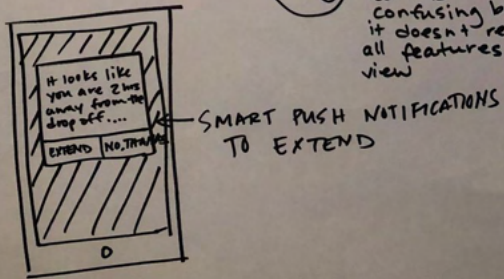 confusing b
it doesnt re
all features
view
It looks like
you are 2 hrs
away from the
drop off....
EXTEND NO, THANKS
SMART PUSH NOTIFICATIONS
TO EXTEND